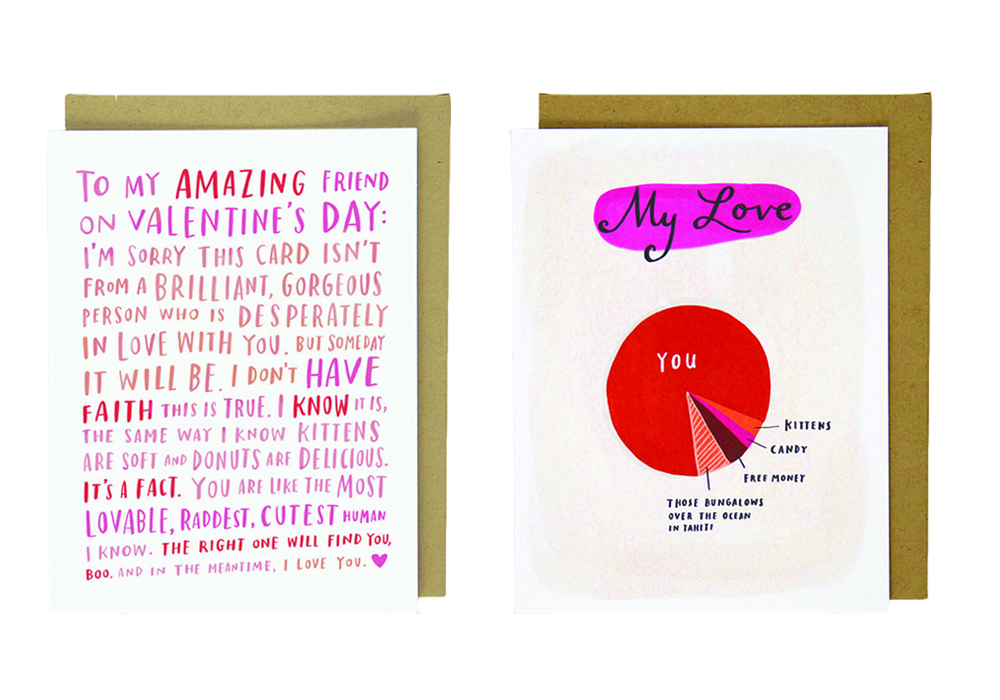 TO MY AMAZING FRIEND
ON VALENTINE'S DAY:
I'M SORRY THIS CARD ISN'T
FROM A BRILLIANT, GORGEOUS
PERSON WHO IS DESPERATELY
IN LOVE WITH YOU. BUT SOMEDAY
IT WILL BE. I DON'T HAVE
FAITH THIS IS TRUE. I KNOW IT IS,
THE SAME WAY I KNOW KITTENS
ARE SOFT AND DONUTS ARE DELICIOUS.
IT'S A FACT. YOU ARE LIKE THE MOST
LOVABLE, RADDEST, CUTEST HUMAN
I KNOW. THE RIGHT ONE WILL FIND YOU,
BOO. AND IN THE MEANTIME, I LOVE YOU.
My Love
YOU
KITTENS
CANDY
FREE MONEY
THOSE BUNGALOWS
OVER THE OCEAN
IN TAHITI